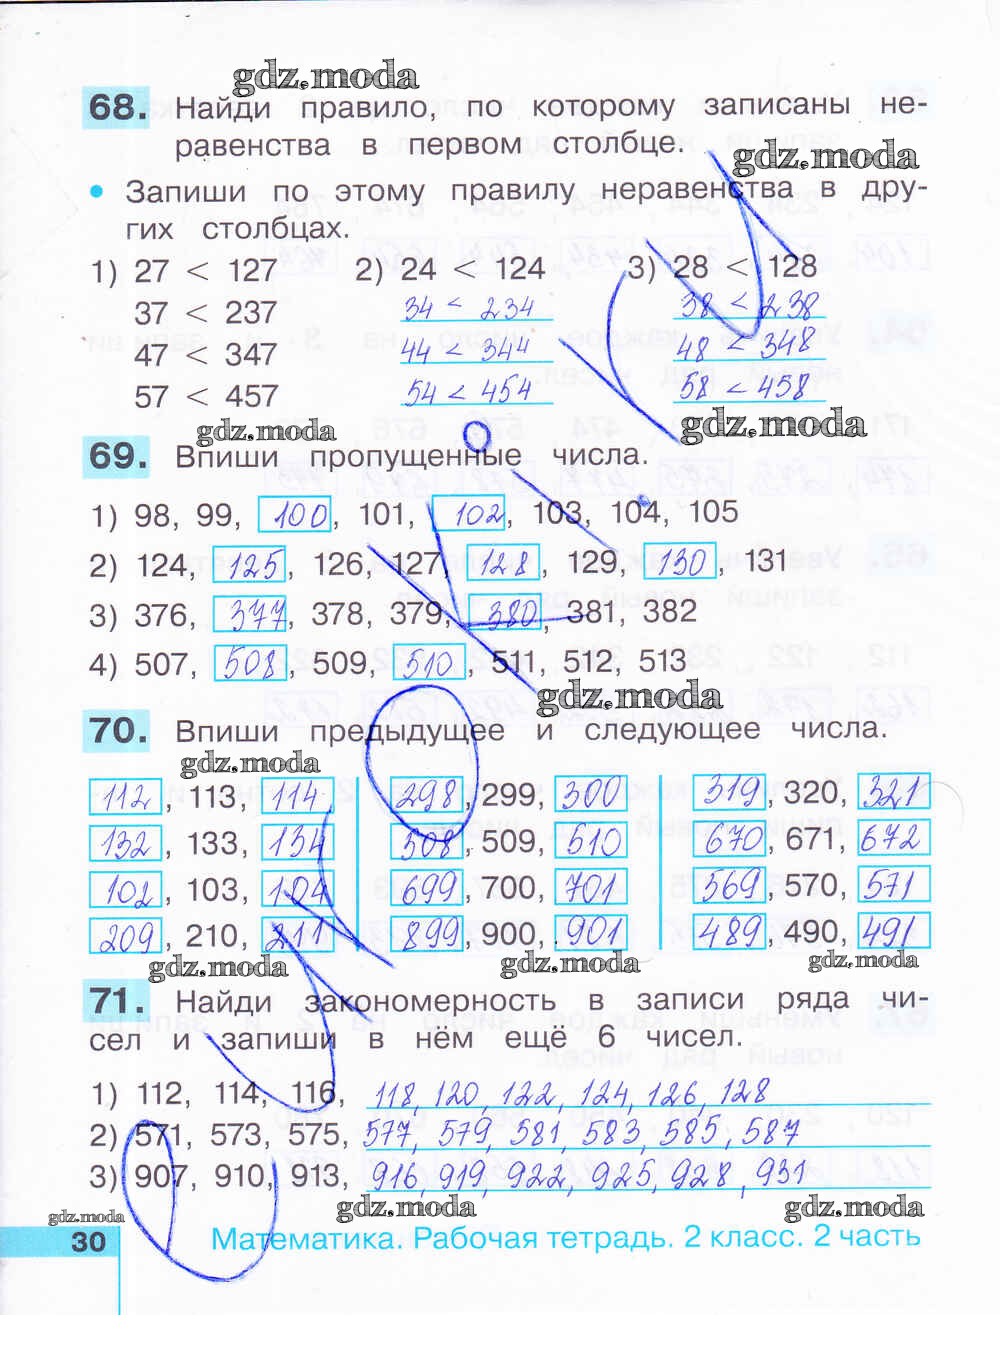 gdz.moda
68. Найди правило, по которому записаны не-
равенства в первом столбце.
gdz.moda
• Запиши по этому правилу неравенства в дру-
гих столбцах.
1) 27 < 127 2) 24 < 124 3) 28 < 128
37 < 237 34 < 234 38 < 238
47 < 347 44 < 344 48 < 348
57 < 457 54 < 454 58 < 458
gdz.moda gdz.moda
69. Впиши пропущенные числа.
1) 98, 99, 100, 101, 102, 103, 104, 105
2) 124, 125, 126, 127, 128, 129, 130, 131
3) 376, 377, 378, 379, 380, 381, 382
4) 507, 508, 509, 510, 511, 512, 513
gdz.moda
70. Впиши предыдущее и следующее числа.
gdz.moda
112, 113, 114 298, 299, 300 319, 320, 321
132, 133, 134 508, 509, 510 670, 671, 672
102, 103, 104 699, 700, 701 569, 570, 571
209, 210, 211 899, 900, 901 489, 490, 491
gdz.moda gdz.moda gdz.moda
71. Найди закономерность в записи ряда чи-
сел и запиши в нём ещё 6 чисел.
1) 112, 114, 116, 118, 120, 122, 124, 126, 128
2) 571, 573, 575, 577, 579, 581, 583, 585, 587
3) 907, 910, 913, 916, 919, 922, 925, 928, 931
gdz.moda gdz.moda gdz.moda
30 Математика. Рабочая тетрадь. 2 класс. 2 часть